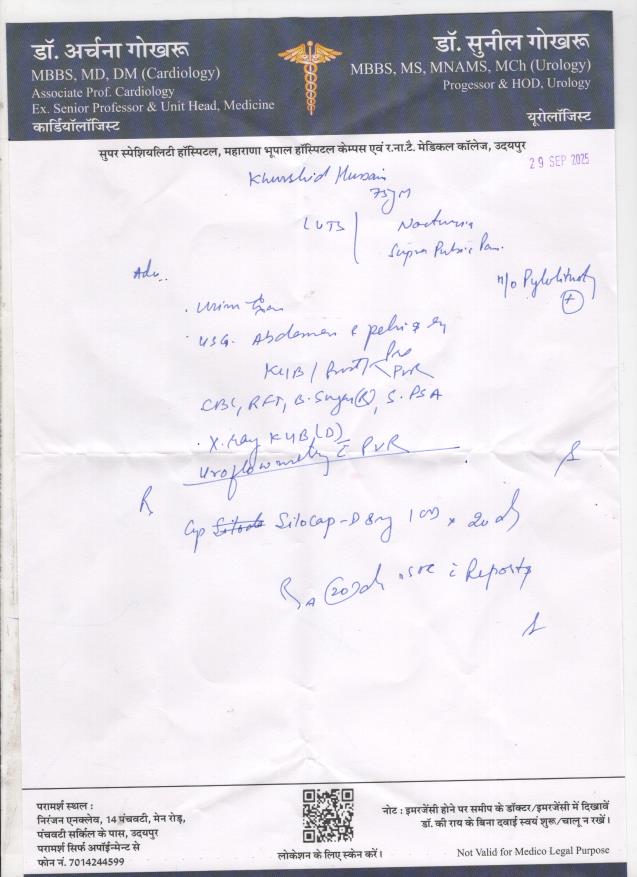 डॉ. अर्चना गोखरू
MBBS, MD, DM (Cardiology)
Associate Prof. Cardiology
Ex. Senior Professor & Unit Head, Medicine
कार्डियॉलॉजिस्ट
डॉ. सुनील गोखरू
MBBS, MS, MNAMS, MCh (Urology)
Progessor & HOD, Urology
यूरोलॉजिस्ट
सुपर स्पेशियलिटी हॉस्पिटल, महाराणा भूपाल हॉस्पिटल केम्पस एवं र.ना.टै. मेडिकल कॉलेज, उदयपुर
29 SEP 2025
Khurshid Hussain
75y M
LUTS Nocturia
Supra Pubic Pain
Adv.
h/o Pylolithotomy
+
Urine
USG. Abdomen & pelvis
KUB / Prost / Pre
PVR
CBC, RFT, B. Sugar (R), S. PSA
X.ray KUB (D)
Uroflowmetry c PVR
R
Cap Silocap-D 8mg 1 OD x 20 d
20 d c Reports
परामर्श स्थल :
निरंजन एनक्लेव, 14 पंचवटी, मेन रोड़,
पंचवटी सर्किल के पास, उदयपुर
परामर्श सिर्फ अपॉईन्मेन्ट से
फोन नं. 7014244599
लोकेशन के लिए स्केन करें।
नोट : इमरजेंसी होने पर समीप के डॉक्टर/इमरजेंसी में दिखावें
डॉ. की राय के बिना दवाई स्वयं शुरू/चालू न रखें।
Not Valid for Medico Legal Purpose